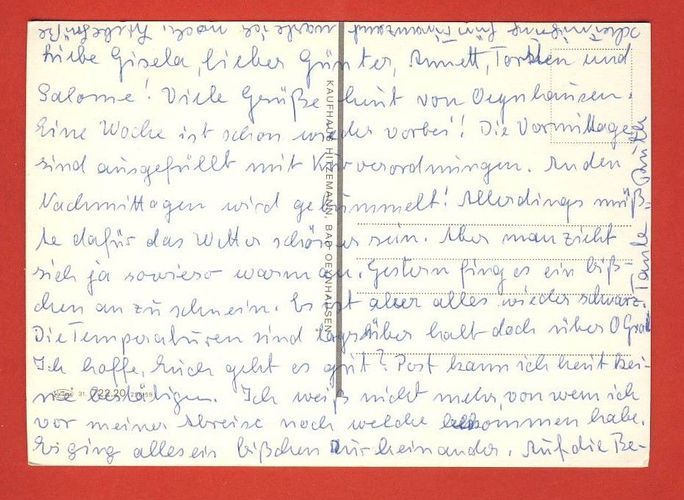 Liebe Gisela, lieber Günter, Annett, Torsten und
Salome! Viele Grüße heut von Oeynhausen.
Eine Woche ist schon wieder vorbei! Die Vormittage
sind ausgefüllt mit Kurverordnungen. An den
Nachmittagen wird gebummelt! Allerdings müß-
te dafür das Wetter schöner sein. Aber man zieht
sich ja sowieso warm an. Gestern fing es ein biß-
chen an zu schnein. Es ist aber alles wieder schwarz.
Die Temperaturen sind tagsüber halt doch über 0 Grad
Ich hoffe, Euch geht es gut? Post kann ich heut kei-
ne bestätigen. Ich weiß nicht mehr, von wem ich
vor meiner Abreise noch welche bekommen habe.
Es ging alles ein bißchen durcheinander. Auf die Be-
scheinigung fürs Finanzamt warte ich noch. Herzl. Grüße
Tante
KAUFHAUS HITZEMANN, BAD OEYNHAUSEN
722.20